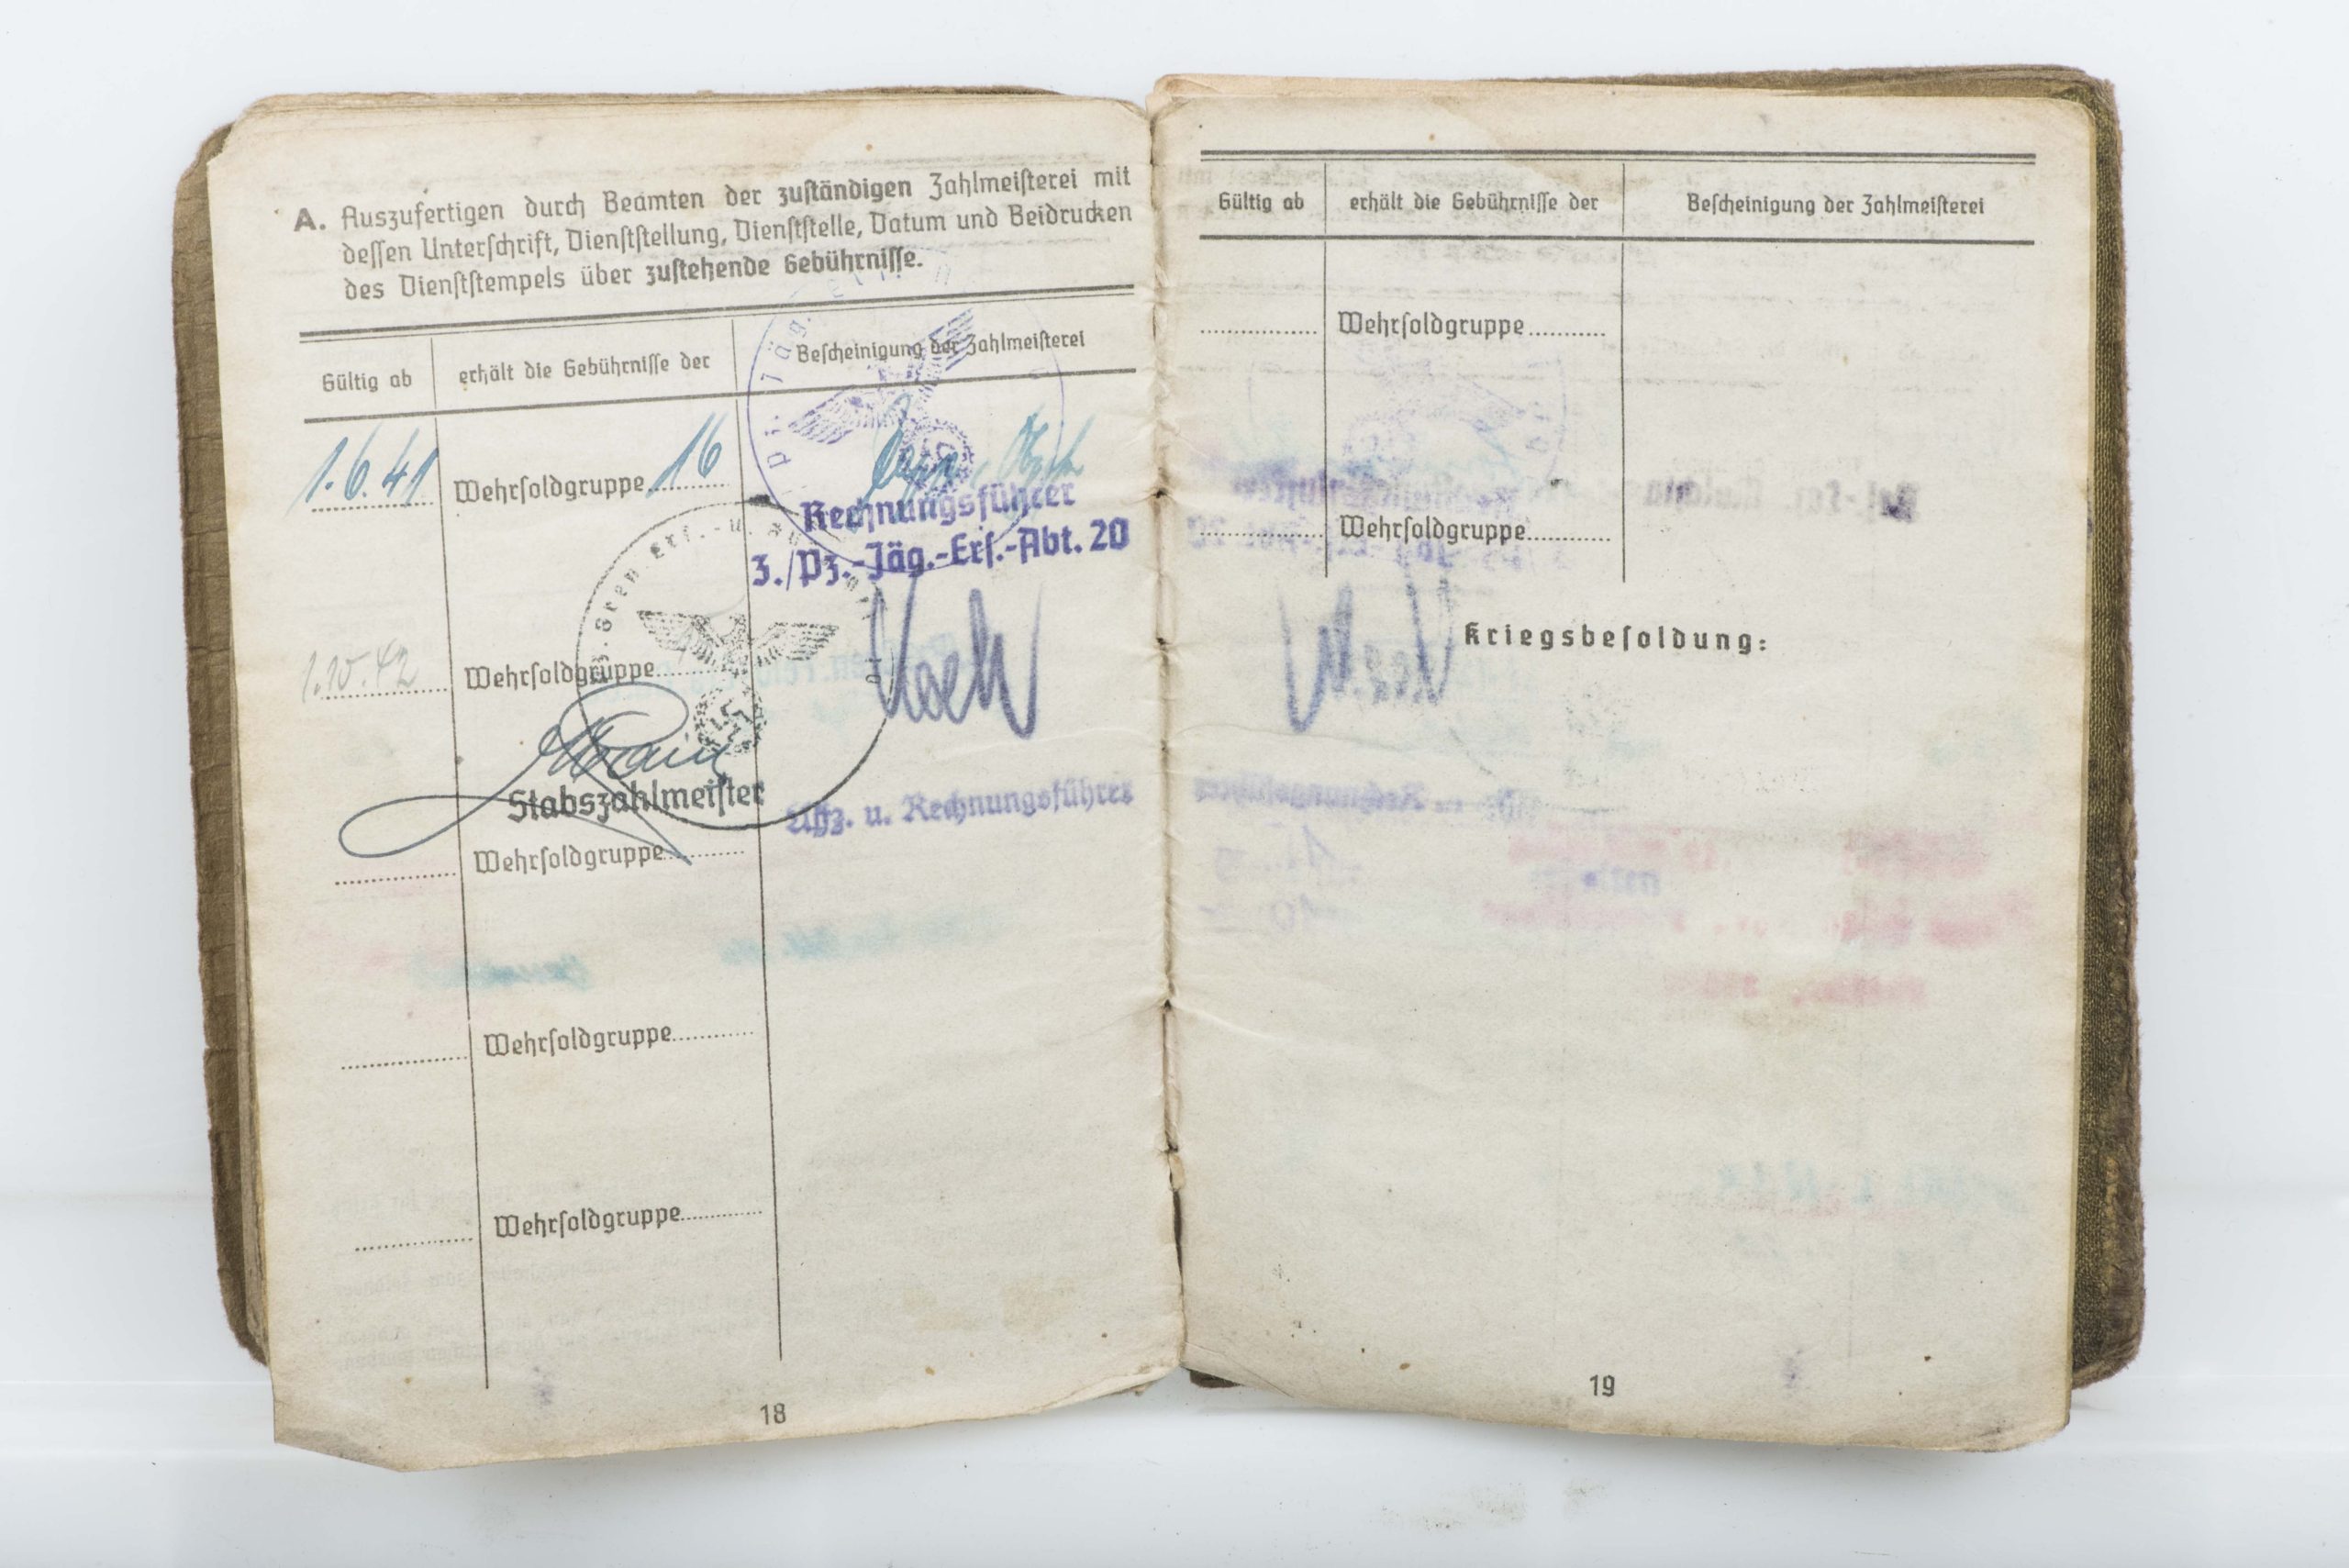 A. Auszufertigen durch Beamten der zuständigen Zahlmeisterei mit
dessen Unterschrift, Dienststellung, Dienststelle, Datum und Beidrucken
des Dienststempels über zustehende Gebührnisse.
Gültig ab
erhält die Gebührnisse der
Bescheinigung der Zahlmeisterei
1.6.41
Wehrsoldgruppe 16
Rechnungsführer
3./Pz.-Jäg.-Ers.-Abt. 20
1.10.42
Wehrsoldgruppe
Stabszahlmeister
Uffz. u. Rechnungsführer
Wehrsoldgruppe
Wehrsoldgruppe
Wehrsoldgruppe
18
Gültig ab
erhält die Gebührnisse der
Bescheinigung der Zahlmeisterei
Wehrsoldgruppe
Wehrsoldgruppe
Kriegsbesoldung:
19